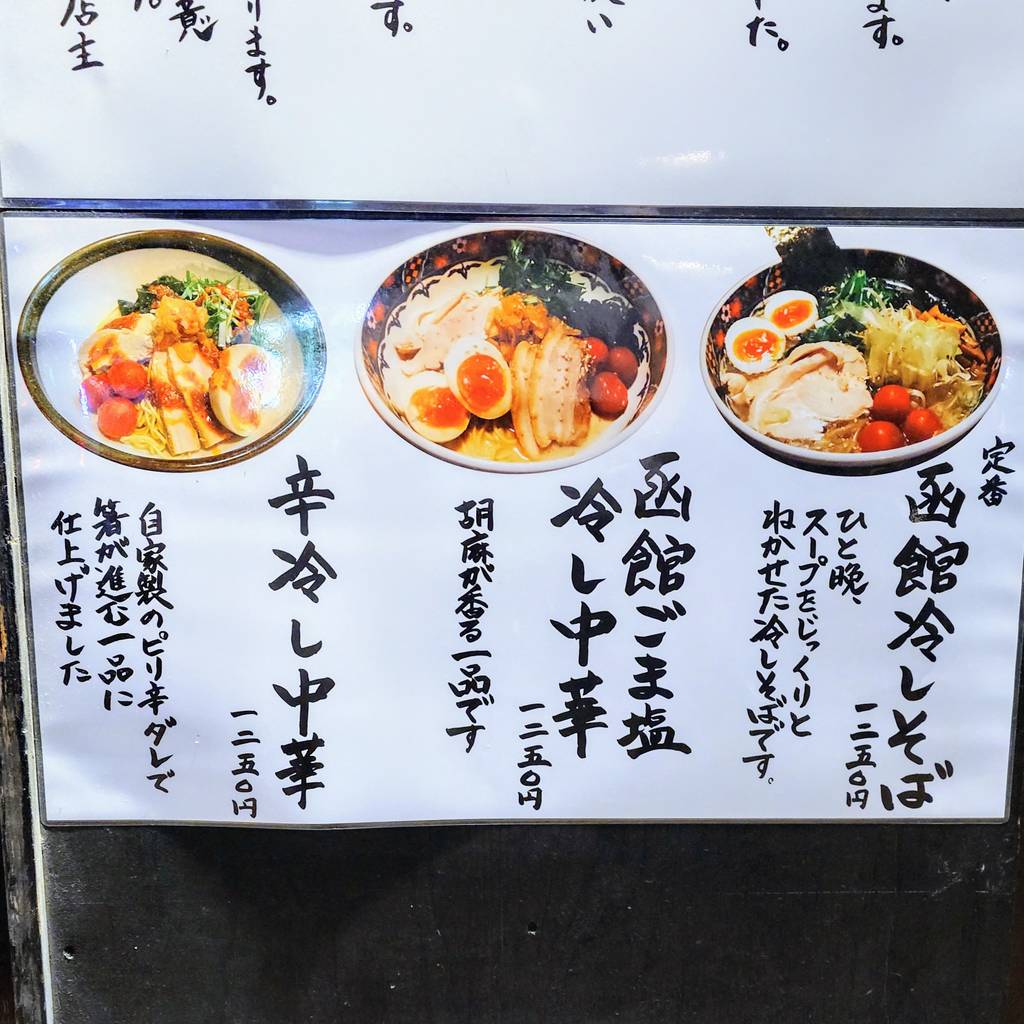 ます。
した。
い
す。
ります。
店主
定番
函館冷しそば
一二五〇円
ひと晩、
スープをじっくりと
ねかせた冷しそばです。
函館ごま塩
冷し中華
一二五〇円
胡麻が香る一品です
辛冷し中華
一二五〇円
自家製のピリ辛ダレで
箸が進む一品に
仕上げました